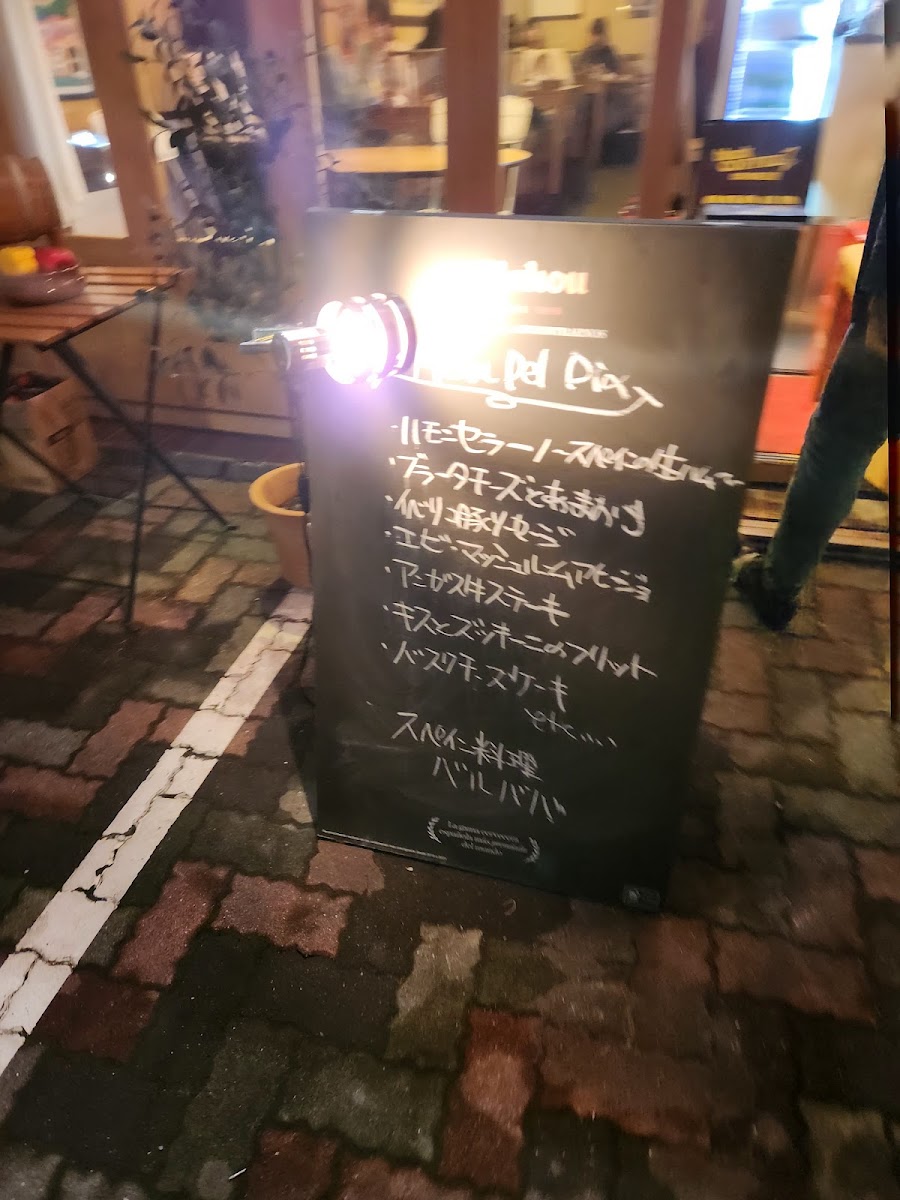 Del Dia
・ハモンセラーノースペインの生ハムー
・ブラータチーズとあまおう
・イベリコ豚ソーセージ
・エビ・マッシュルームアヒージョ
・アンガス牛ステーキ
・キスとズッキーニのフリット
・バスクチーズケーキ
etc...
スペイン料理
バル
La gama cervecera
española más premiada
del mundo